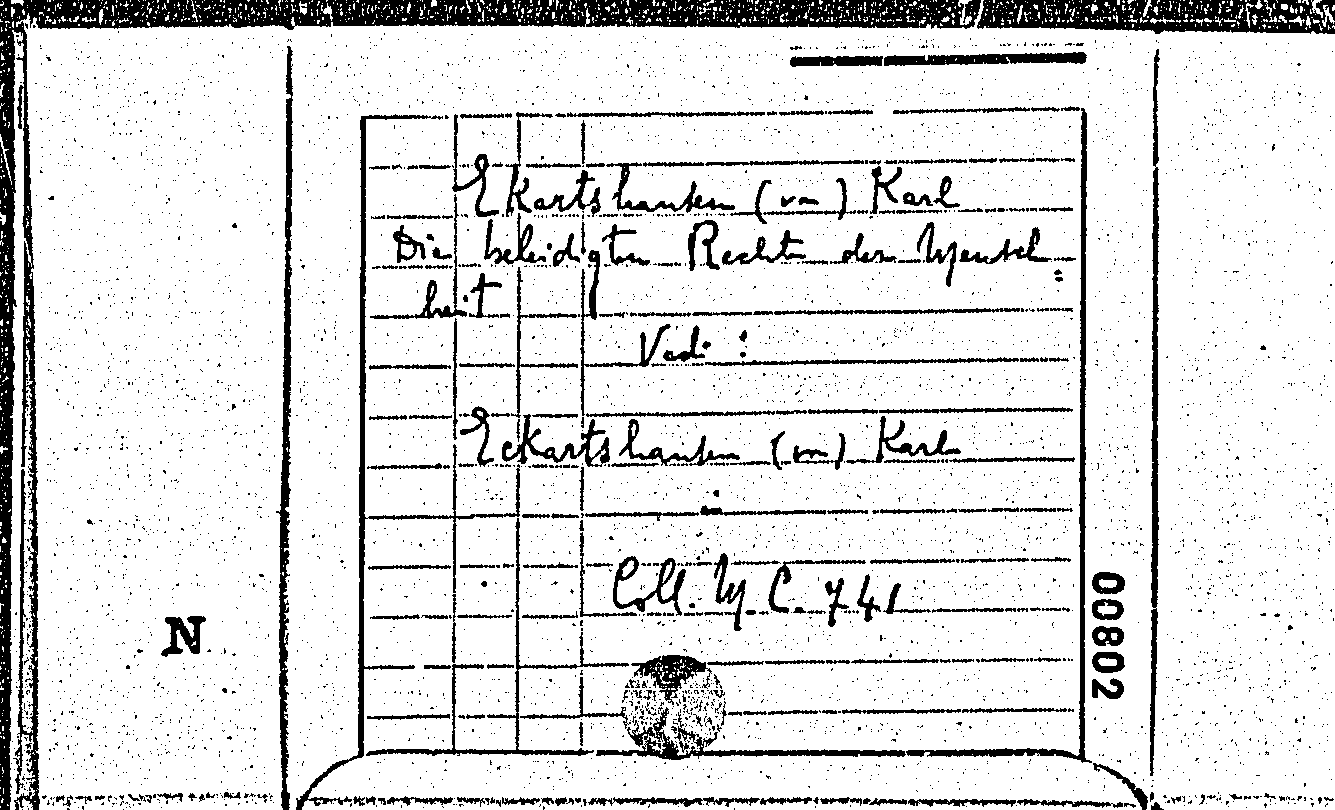 Ekartshausen (von) Karl
Die beleidigten Rechte der Mensch=
heit
Vedi :
Eckartshausen (von) Karl
in
Coll. M. C. 741
N
00802